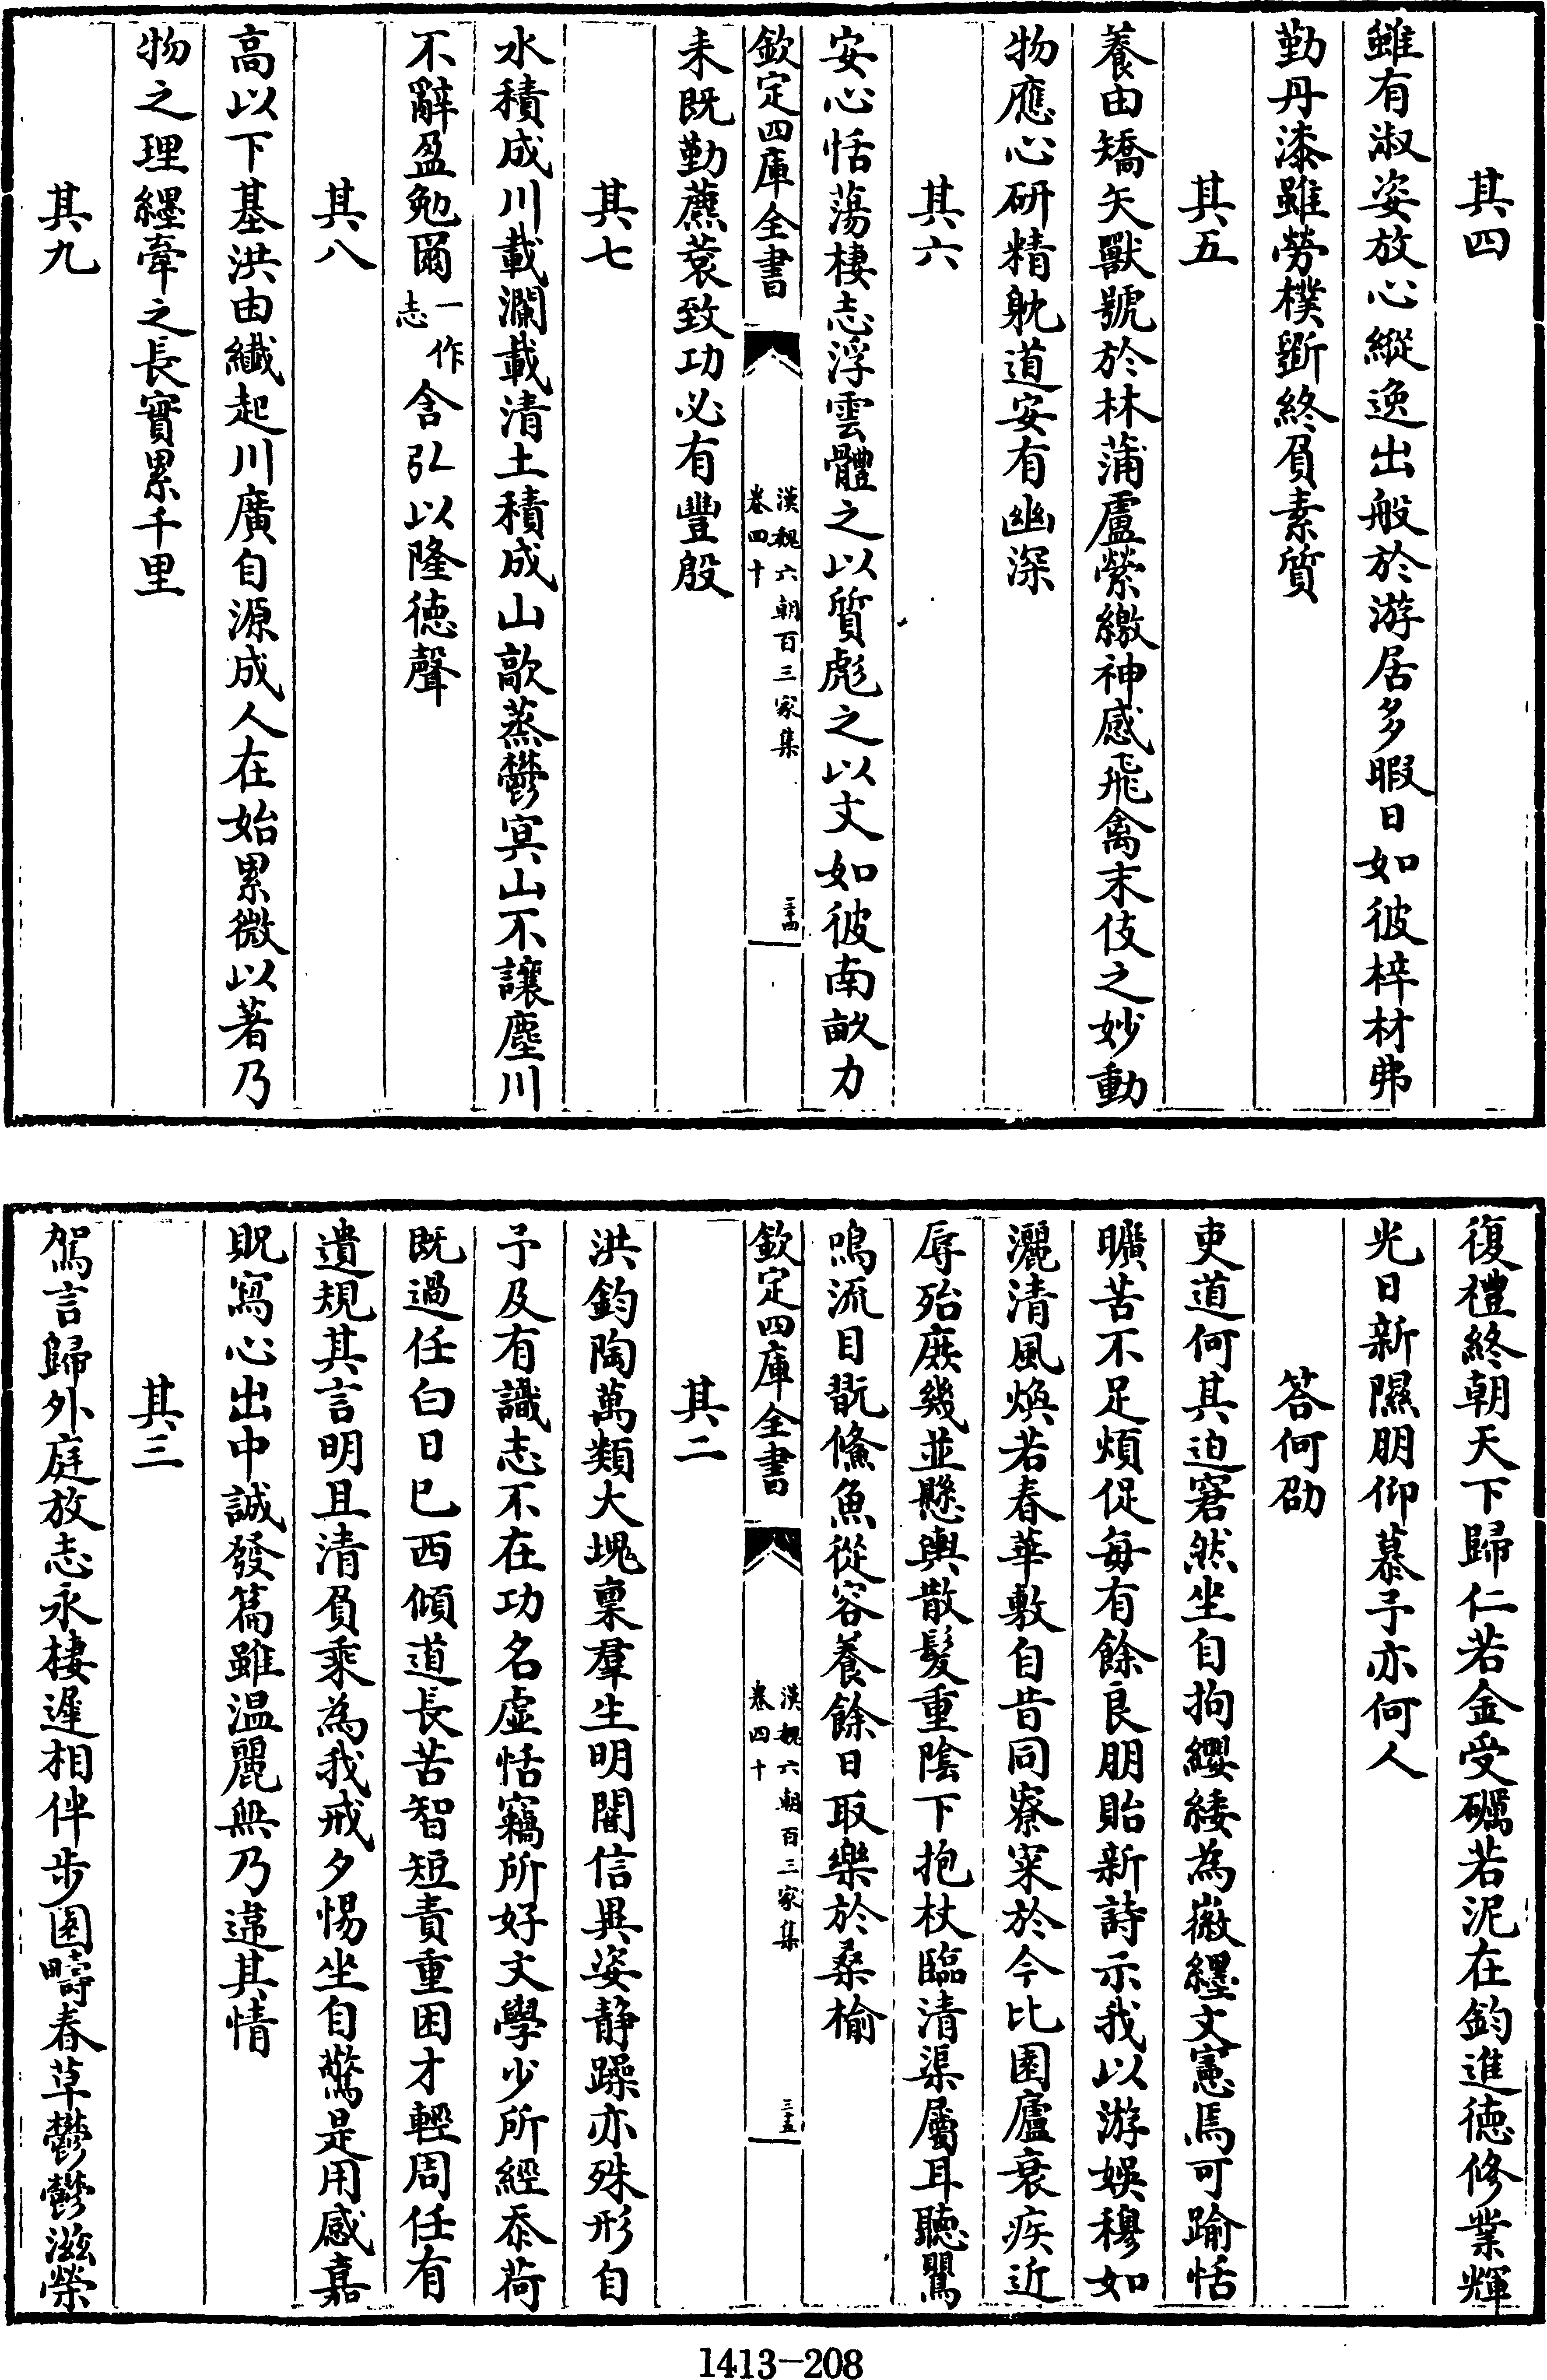 其四
雖有淑姿放心縱逸出般於游居多暇日如彼梓材弗
勤丹漆雖勞樸斵終負素質
其五
養由矯矢獸號於林蒲盧縈繳神感飛禽末伎之妙動
物應心研精躭道安有幽深
其六
安心恬蕩棲志浮雲體之以質彪之以文如彼南畝力
欽定四庫全書
漢魏六朝百三家集
卷四十
三十四
耒既勤藨蔉致功必有豐殷
其七
水積成川載瀾載清土積成山歊蒸鬱冥山不讓塵川
不辭盈勉爾一作志含弘以隆德聲
其八
高以下基洪由纎起川廣自源成人在始累微以著乃
物之理纆牽之長實累千里
其九
復禮終朝天下歸仁若金受礪若泥在鈞進德修業輝
光日新隰朋仰慕予亦何人
答何劭
吏道何其迫窘然坐自拘纓緌為徽纆文憲焉可踰恬
曠苦不足煩促每有餘良朋貽新詩示我以游娛穆如
灑清風煥若春華敷自昔同寮寀於今比園廬衰疾近
辱殆庶幾並懸輿散髮重陰下抱杖臨清渠屬耳聽鸎
鳴流目翫鯈魚從容養餘日取樂於桑榆
欽定四庫全書
漢魏六朝百三家集
卷四十
三十五
其二
洪鈞陶萬類大塊稟羣生明闇信異姿静躁亦殊形自
予及有識志不在功名虚恬竊所好文學少所經忝荷
既過任白日已西傾道長苦智短責重困才輕周任有
遺規其言明且清負乘為我戒夕惕坐自驚是用感嘉
貺寫心出中誠發篇雖温麗無乃違其情
其三
駕言歸外庭放志永棲遲相伴步園疇春草鬱鬱滋榮
1413-208